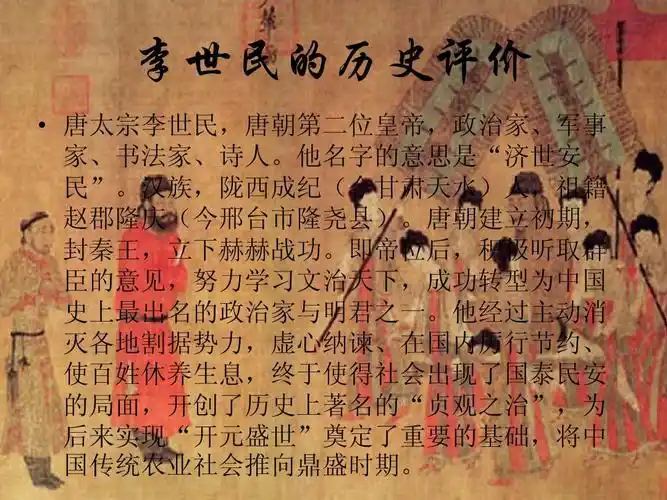 李世民的历史评价
• 唐太宗李世民，唐朝第二位皇帝，政治家、军事
家、书法家、诗人。他名字的意思是“济世安
民”。汉族，陇西成纪（今甘肃天水）人，祖籍
赵郡隆庆（今邢台市隆尧县）。唐朝建立初期，
封秦王，立下赫赫战功。即帝位后，积极听取群
臣的意见，努力学习文治天下，成功转型为中国
史上最出名的政治家与明君之一。他经过主动消
灭各地割据势力，虚心纳谏、在国内厉行节约、
使百姓休养生息，终于使得社会出现了国泰民安
的局面，开创了历史上著名的“贞观之治”，为
后来实现“开元盛世”奠定了重要的基础，将中
国传统农业社会推向鼎盛时期。